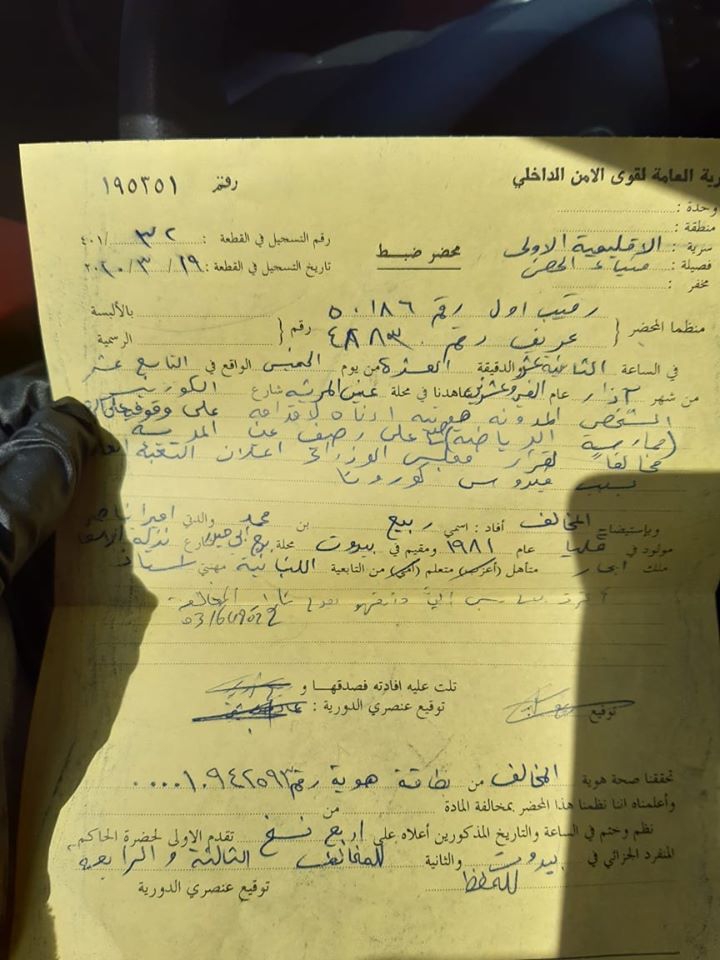 رية العامة لقوى الامن الداخلي
رقم ١٩٥٣٥١
وحدة :
منطقة :
سرية : الاقليمية الاولى
فصيلة : ميناء الحصن
مخفر :
رقم التسجيل في القطعة : ٣٢ /٤٠١
تاريخ التسجيل في القطعة : ١٩ / ٣ / ٢٠٢٠
محضر ضبط
منظما المحضر { رقيب اول رقم ٥٠١٨٦
عريف رقم ٤٨٨٣٠ } رقم { بالألبسة الرسمية
في الساعة الثانية عشر والدقيقة العشرة من يوم الخميس الواقع في التاسع عشر
من شهر آذار عام الفين وعشرين شاهدنا في محلة عين المريسة شارع الكورنيش
الشخص المدونة هويته ادناه على وقوفه
ممارسة الرياضة على رصيف عين المريسة
مخالفاً لقرار مجلس الوزراء اعلان التعبئة العامة
بسبب فيروس كورونا
وبإستيضاح المخالف أفاد : اسمي ربيع بن محمد والدتي اميرة
مولود في عام ١٩٨١ ومقيم في بيروت محلة برج ابي حيدر شارع
ملك ايجار متأهل (أعزب) متعلم (أمي) من التابعية اللبنانية مهنتي استاذ
المخالفة
03/649022
تلت عليه افادته فصدقهـا و
توقيع
توقيع عنصري الدورية :
تحققنا صحة هوية المخالف من بطاقة هوية رقم ٠٠٠٠١٠٩٤٢٥٩٣
وأعلمناه اننا نظمنا هذا المحضر بمخالفة المادة من
نظم وختم في الساعة والتاريخ المذكورين أعلاه على اربع نسخ تقدم الاولى لحضرة الحاكم
المنفرد الجزائي في بيروت والثانية للمخالف الثالثة والرابعة
للحفظ
توقيع عنصري الدورية